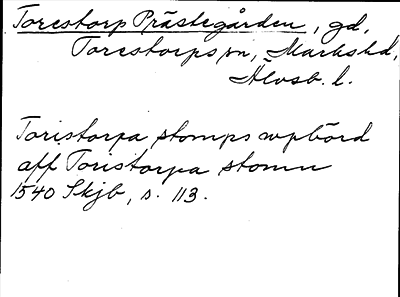 Torestorp Prästegården, gd,
Torestorps sn, Markshd,
Älvsb. l.
Toristorpa stomps wpbörd
aff Toristorpa stomn
1540 Skjb, s. 113.